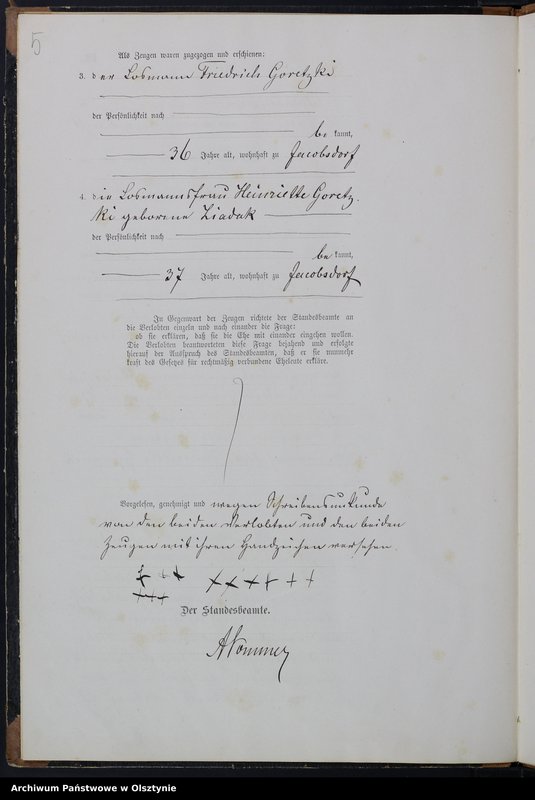 5
Als Zeugen waren zugezogen und erschienen:
3. der Losmann Friedrich Goretzki
der Persönlichkeit nach
be kannt,
36 Jahre alt, wohnhaft zu Jacobsdorf
4. die Losmannsfrau Heinriette Goretz-
ki geborene Ziadak
der Persönlichkeit nach
be kannt,
37 Jahre alt, wohnhaft zu Jacobsdorf
In Gegenwart der Zeugen richtete der Standesbeamte an
die Verlobten einzeln und nach einander die Frage:
ob sie erklären, daß sie die Ehe mit einander eingehen wollen.
Die Verlobten beantworteten diese Frage bejahend und erfolgte
hierauf der Ausspruch des Standesbeamten, daß er sie nunmehr
kraft des Gesetzes für rechtmäßig verbundene Eheleute erkläre.
Vorgelesen, genehmigt und wegen Schreibensunkunde
von den beiden Verlobten und den beiden
Zeugen mit ihren Handzeichen versehen.
+++ +++ +++ +++
Der Standesbeamte.
Archiwum Państwowe w Olsztynie